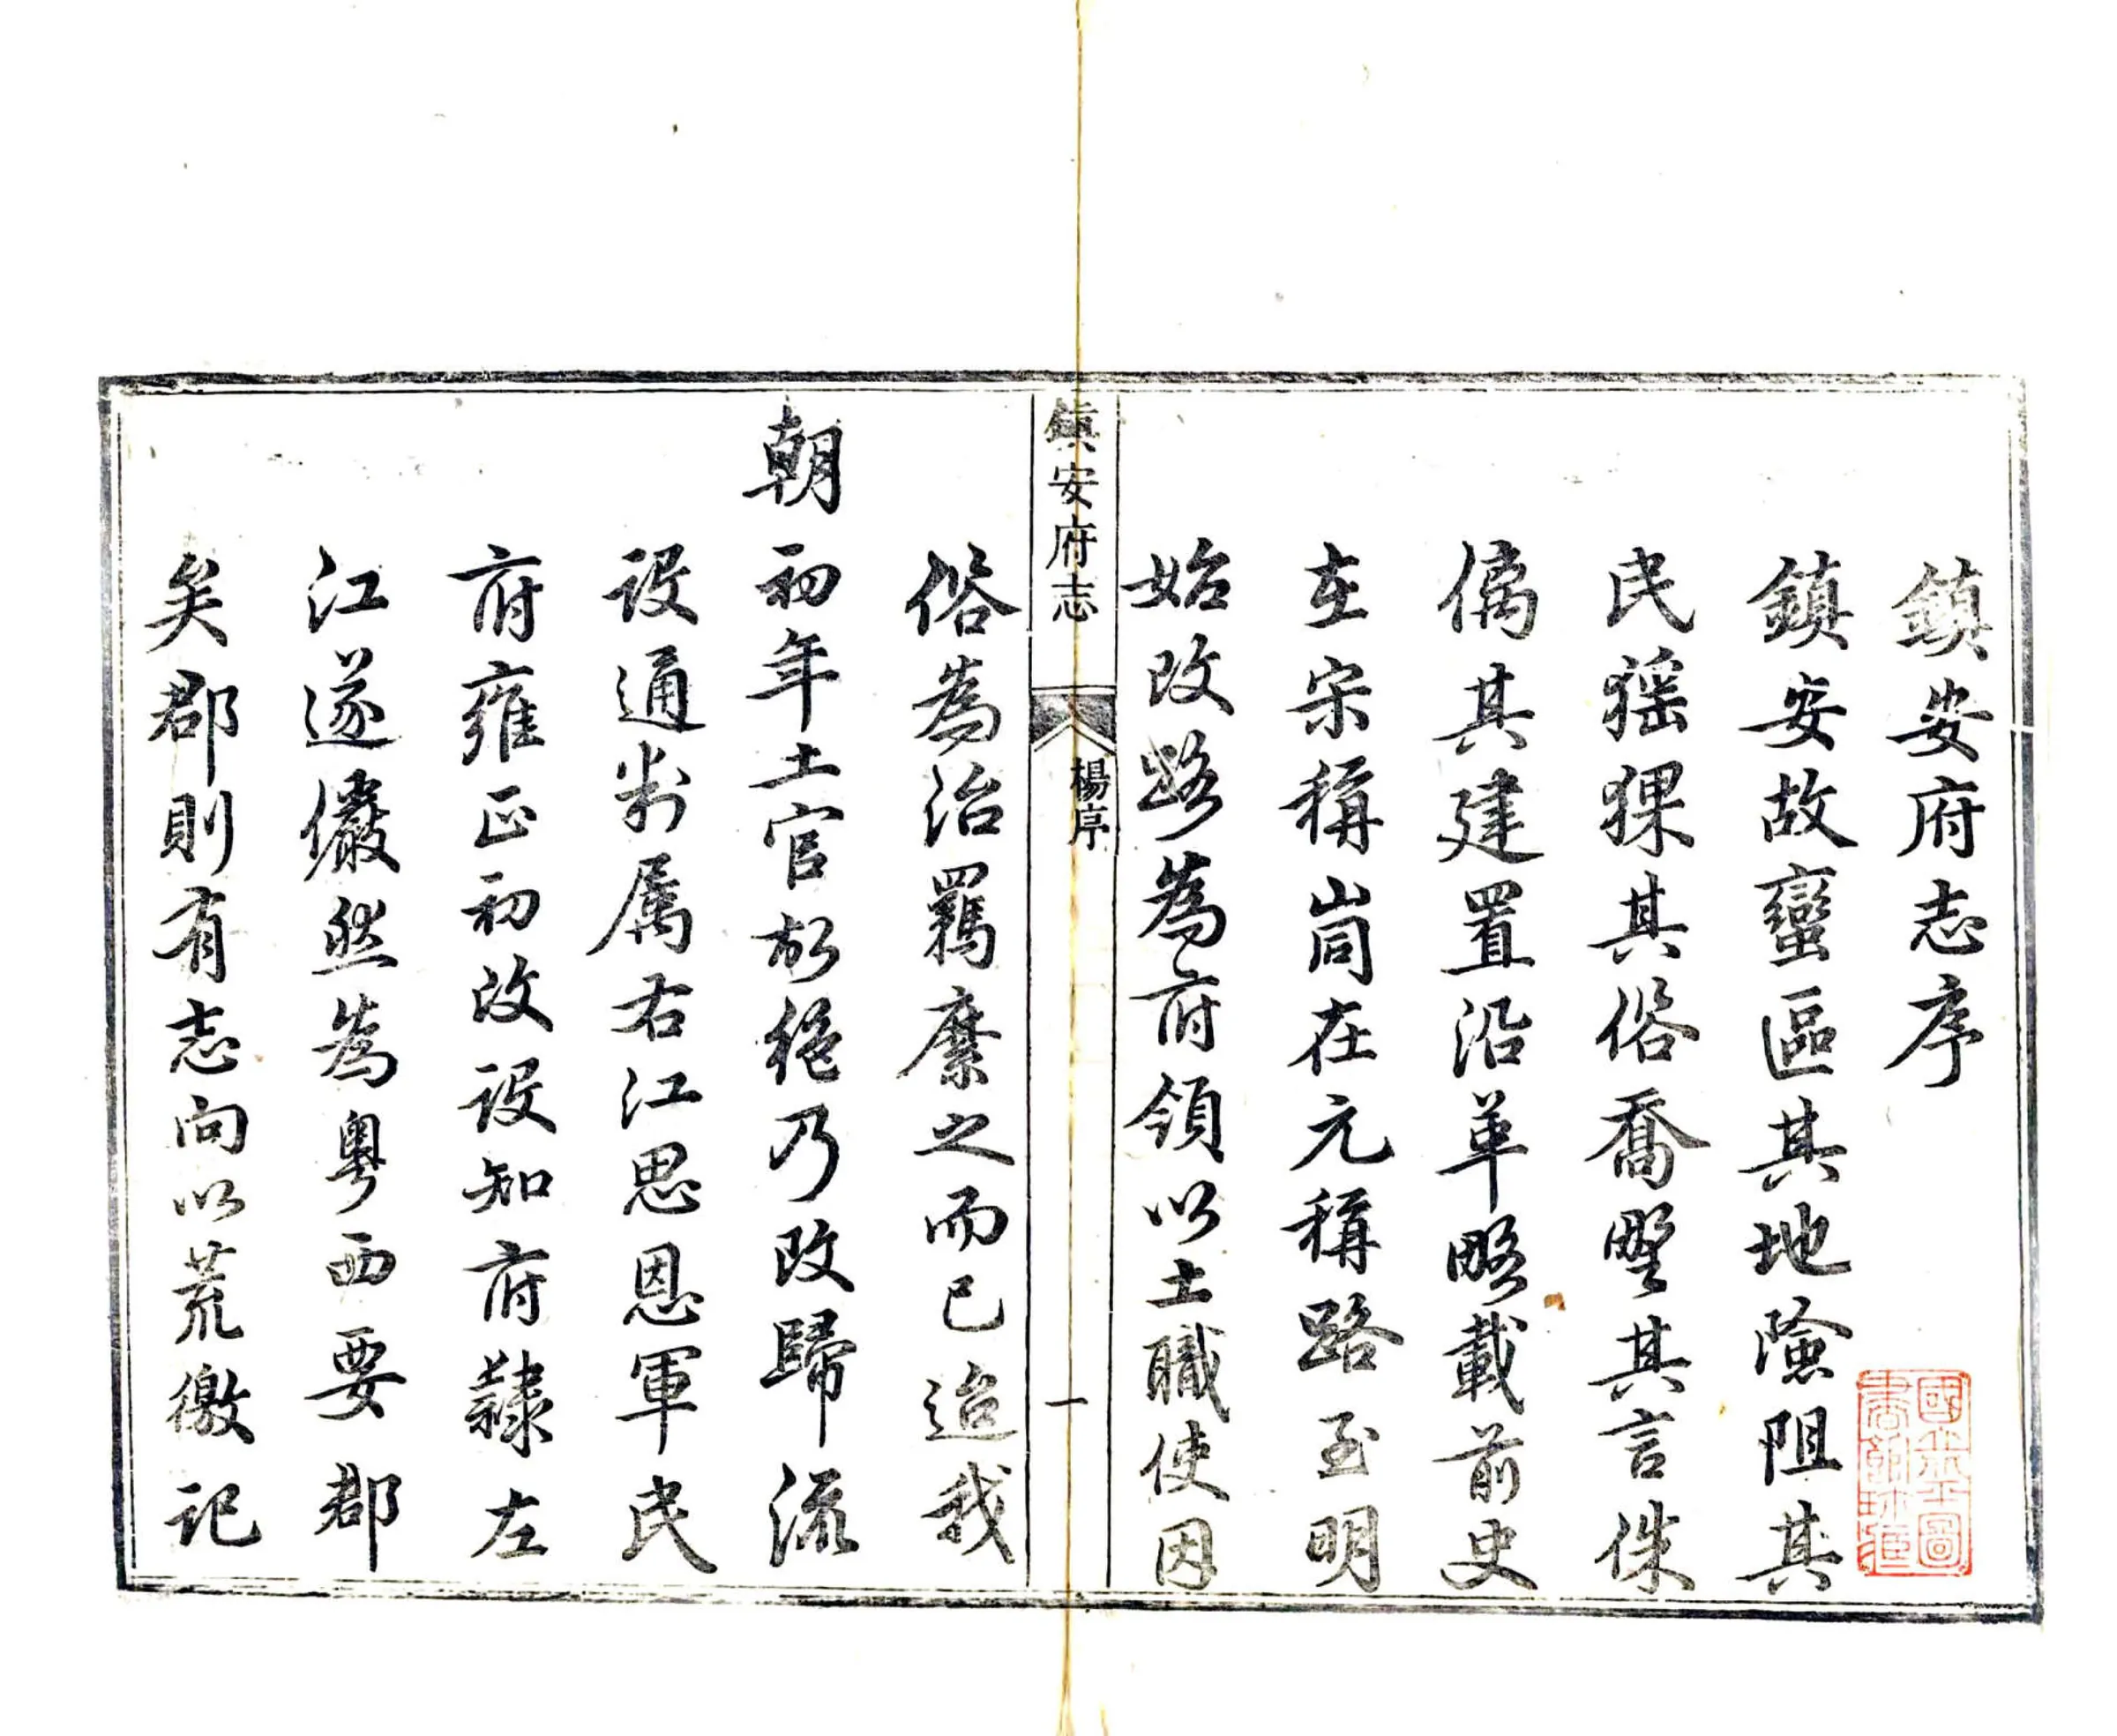 鎮安府志序
鎮安故蠻區其地險阻其
民猺猓其俗喬野其言侏
僪其建置沿革略載前史
在宋稱峝在元稱路至明
始改路為府領以土職使因
鎮安府志
楊序
一
俗為治羈縻之而已迨我
朝初年土官故絕乃改歸流
設通判属右江思恩軍民
府雍正初改設知府隸左
江遂儼然為粵西要郡
矣郡則有志向以荒徼記